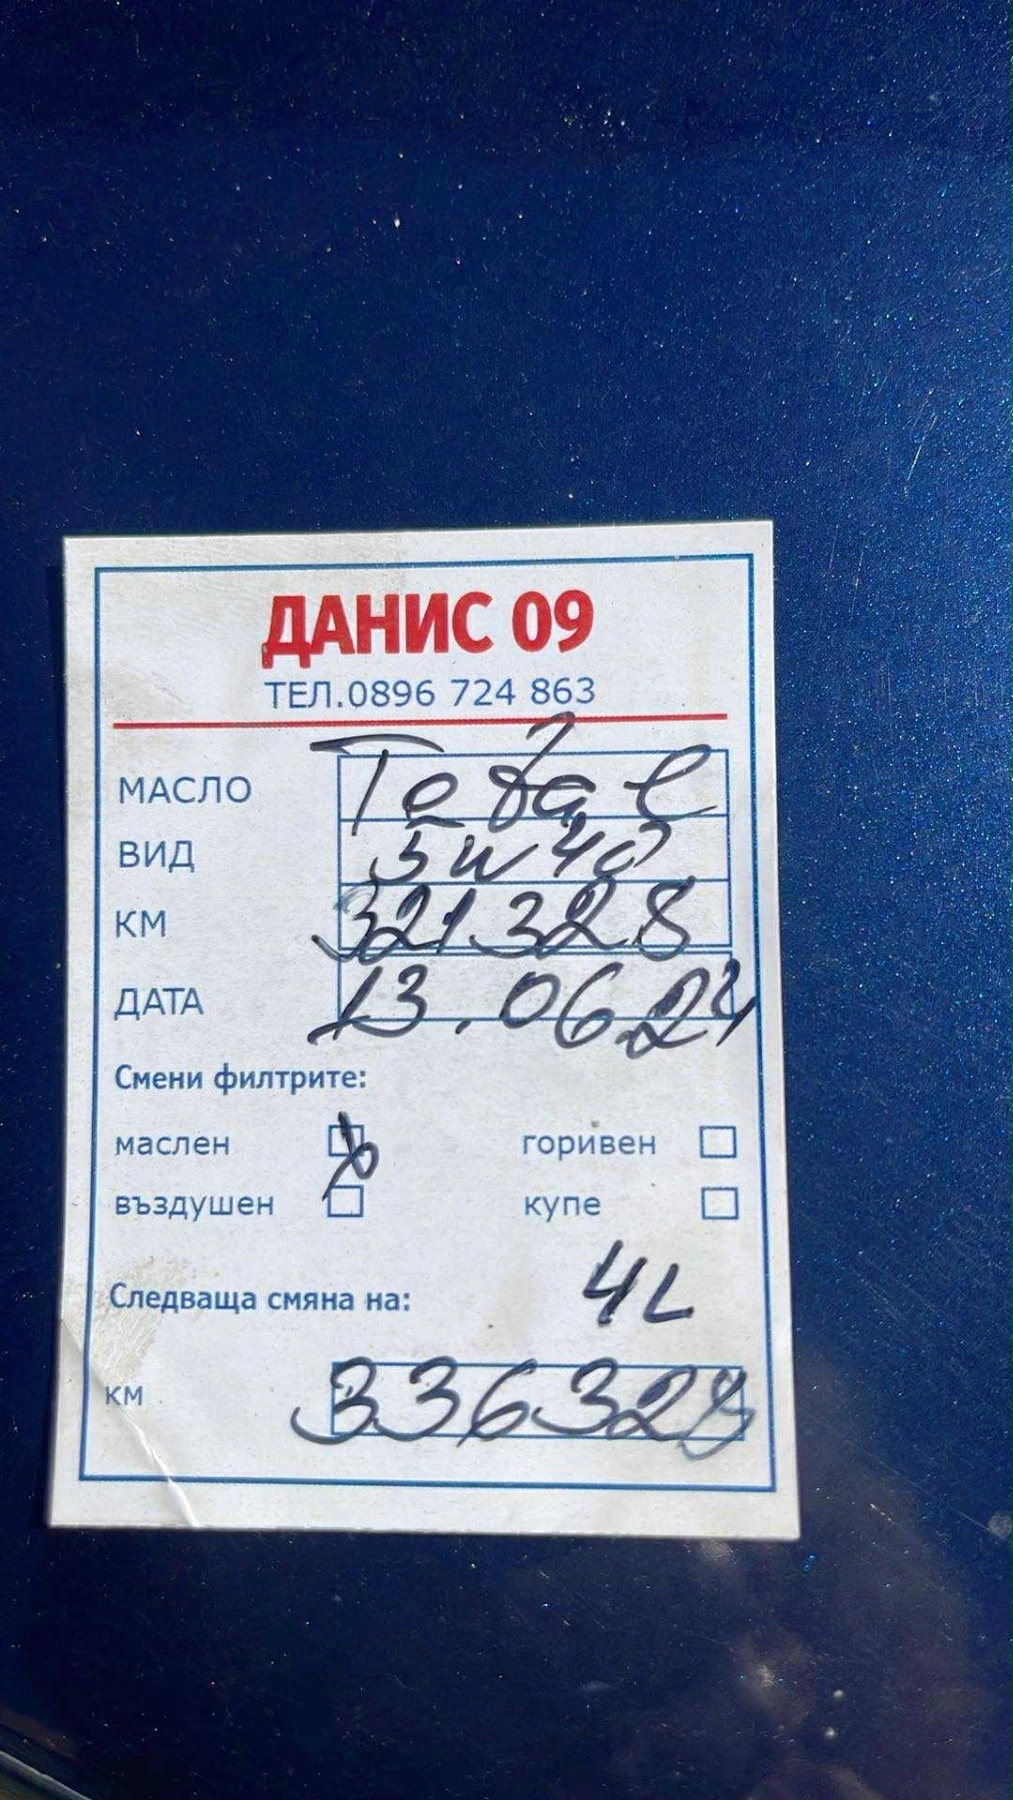 ДАНИС 09
ТЕЛ.0896 724 863
МАСЛО Total
ВИД 5w40
КМ 321328
ДАТА 13.06.24
Смени филтрите:
маслен горивен
въздушен купе
Следваща смяна на: 4L
км 336328